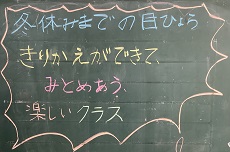 冬休みまでの目ひょう
きりかえができて、
みとめあう、
楽しいクラス